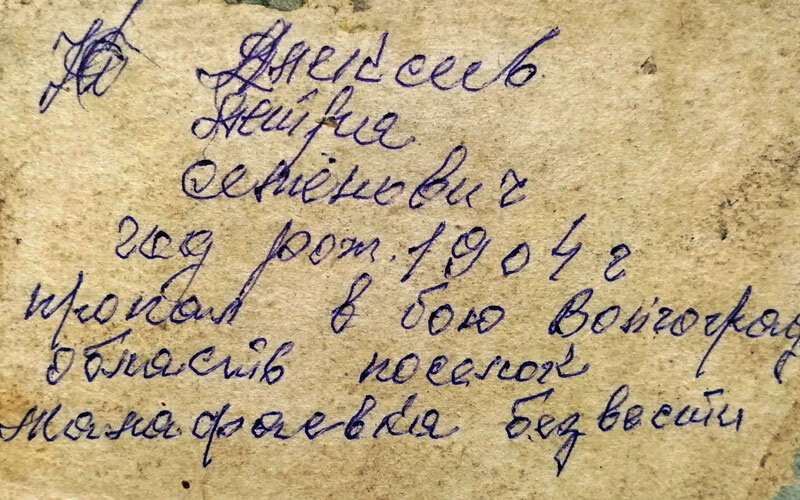 Алексев
Петрия
семёнович
год рож. 1904 г
пропал в бою Волгоград
областв поселок
малафаевка без вости